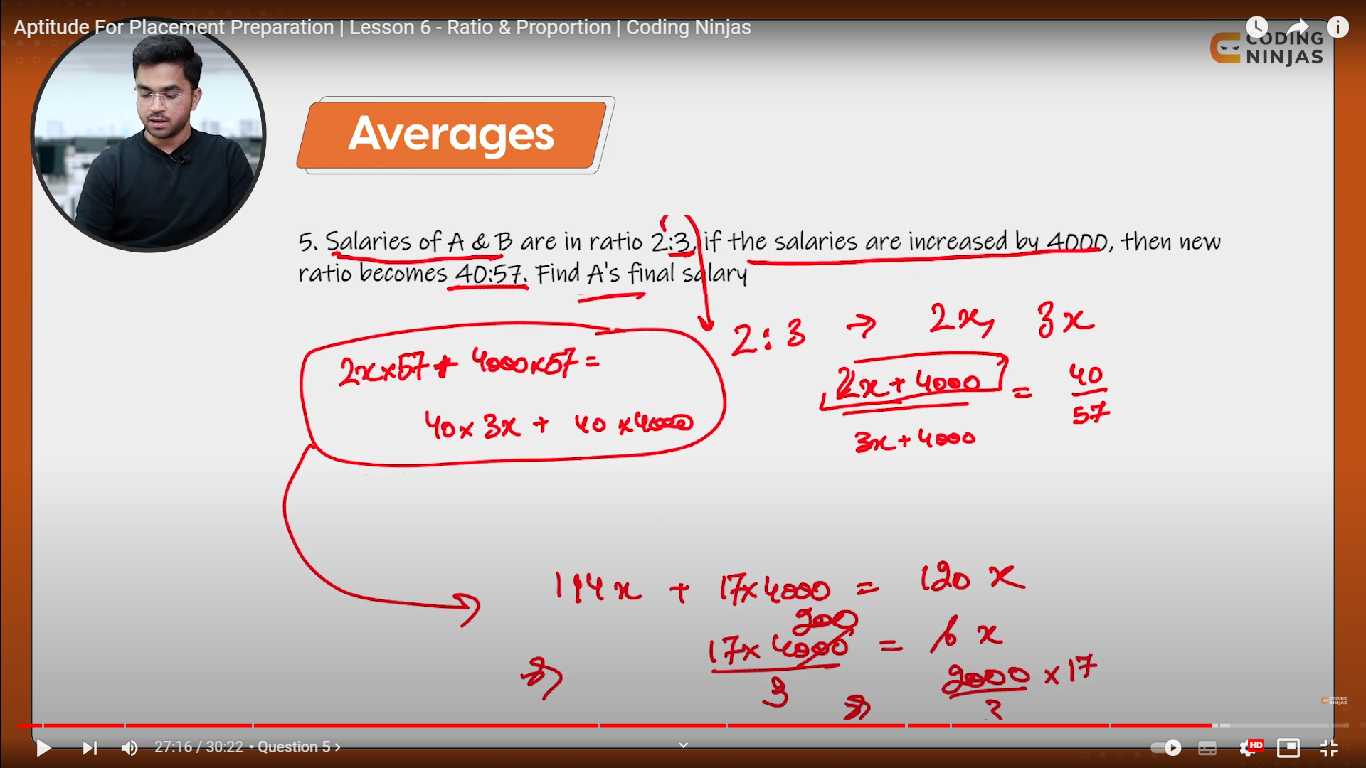 Aptitude For Placement Preparation | Lesson 6 - Ratio & Proportion | Coding Ninjas
CODING
NINJAS
Averages
5. Salaries of A & B are in ratio 2:3, if the salaries are increased by 4000, then new
ratio becomes 40:57. Find A's final salary
2:3 → 2x, 3x
2x×57 + 4000×57 =
40×3x + 40×4000
2x + 4000 = 40
3x + 4000 57
114x + 17×4000 = 120x
17×4000 = 6x
3
2000 × 17
CODING
NINJAS
27:16 / 30:22 • Question 5 ›
HD